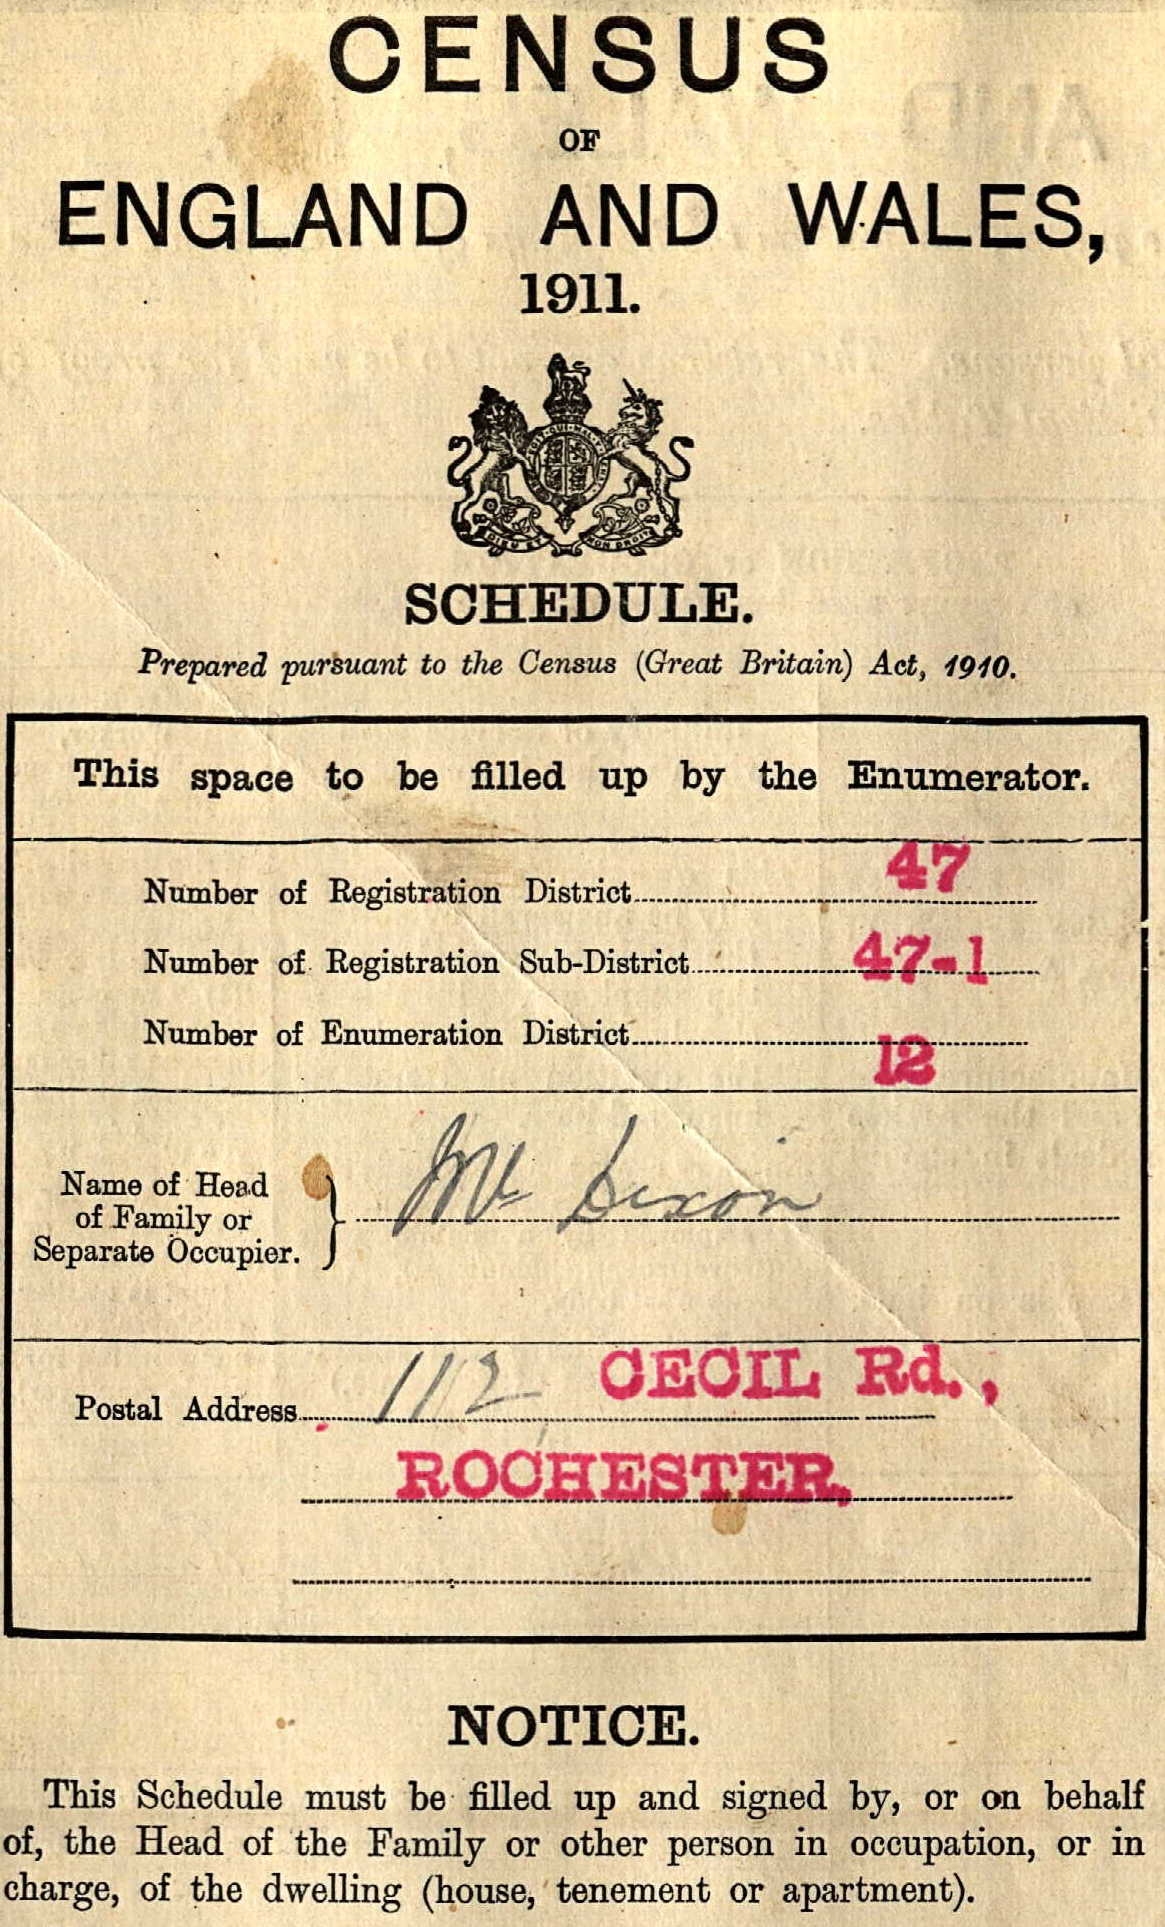 CENSUS
OF
ENGLAND AND WALES,
1911.
DIEU ET MON DROIT
SCHEDULE.
Prepared pursuant to the Census (Great Britain) Act, 1910.
This space to be filled up by the Enumerator.
Number of Registration District 47
Number of Registration Sub-District 47-1
Number of Enumeration District 12
Name of Head
of Family or
Separate Occupier.
Mr Dixon
Postal Address 112 CECIL Rd.,
ROCHESTER,
NOTICE.
This Schedule must be filled up and signed by, or on behalf
of, the Head of the Family or other person in occupation, or in
charge, of the dwelling (house, tenement or apartment).